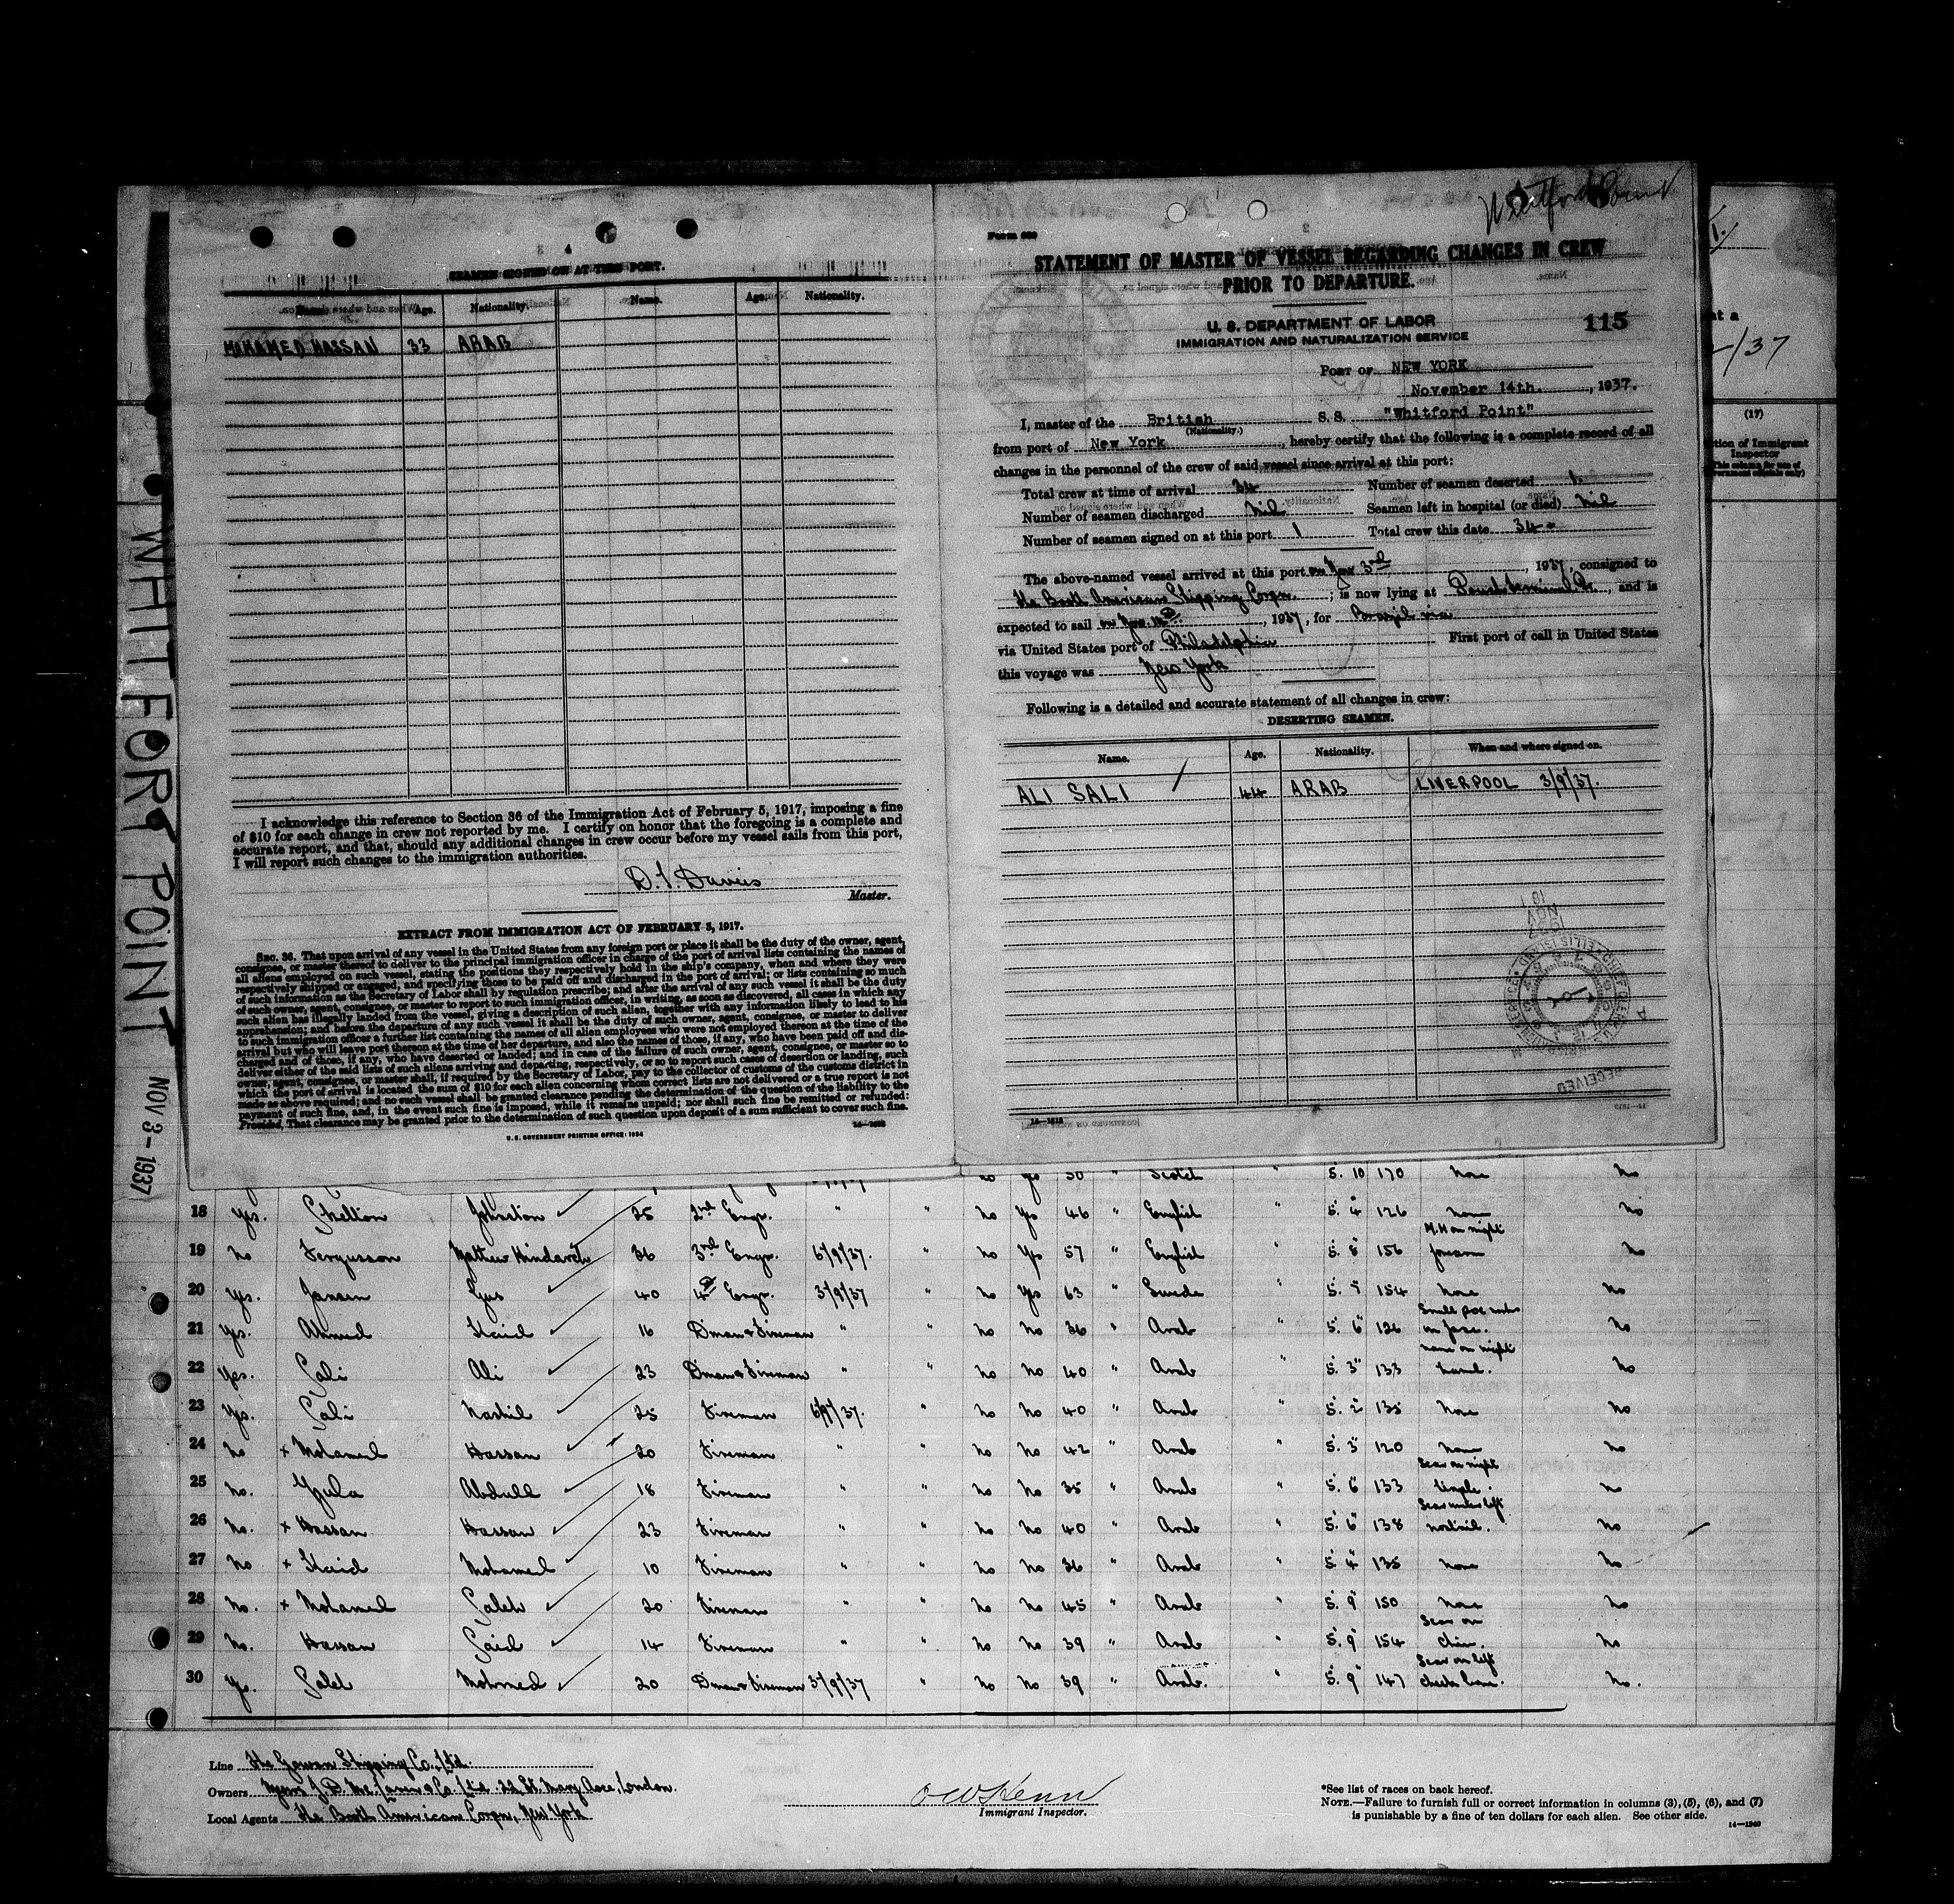 Whitford Point
WHITFORD POINT NOV 3-1937
4
SEAMEN SIGNED ON AT THIS PORT.
Name. Age. Nationality. Name. Age. Nationality.
MOHAMED HASSAN 33 ARAB
I acknowledge this reference to Section 36 of the Immigration Act of February 5, 1917, imposing a fine
of $10 for each change in crew not reported by me. I certify on honor that the foregoing is a complete and
accurate report, and that, should any additional changes in crew occur before my vessel sails from this port,
I will report such changes to the immigration authorities.
Master.
EXTRACT FROM IMMIGRATION ACT OF FEBRUARY 5, 1917.
SEC. 36. That upon arrival of any vessel in the United States from any foreign port or place it shall be the duty of the owner, agent,
consignee, or master thereof to deliver to the principal immigration officer in charge of the port of arrival lists containing the names of
all aliens employed on such vessel, stating the positions they respectively hold in the ship's company, when and where they were
respectively shipped or engaged; and specifying those to be paid off and discharged in the port of arrival; or lists containing so much
of such information as the Secretary of Labor shall by regulation prescribe; and after the arrival of any such vessel it shall be the duty
of such owner, agent, consignee, or master to report to such immigration officer, in writing, as soon as discovered, all cases in which any
such alien has illegally landed from the vessel, giving a description of such alien, together with any information likely to lead to his
apprehension; and before the departure of any such vessel it shall be the duty of such owner, agent, consignee, or master to deliver
to such immigration officer a further list containing the names of all alien employees who were not employed thereon at the time of the
arrival but who will leave port thereon at the time of her departure, and also the names of those, if any, who have been paid off and dis-
charged and of those, if any, who have deserted or landed; and in case of the failure of such owner, agent, consignee, or master so to
deliver either of the said lists of such aliens arriving and departing, respectively, or so to report such cases of desertion or landing, such
owner, agent, consignee, or master shall, if required by the Secretary of Labor, pay to the collector of customs of the customs district in
which the port of arrival is located the sum of $10 for each alien concerning whom correct lists are not delivered or a true report is not
made as above required; and no such vessel shall be granted clearance pending the determination of the question of the liability to the
payment of such fine, and, in the event such fine is imposed, while it remains unpaid; nor shall such fine be remitted or refunded:
Provided, That clearance may be granted prior to the determination of such question upon deposit of a sum sufficient to cover such fine.
U. S. GOVERNMENT PRINTING OFFICE: 1934
STATEMENT OF MASTER OF VESSEL REGARDING CHANGES IN CREW
PRIOR TO DEPARTURE.
U. S. DEPARTMENT OF LABOR
IMMIGRATION AND NATURALIZATION SERVICE
115
PORT OF NEW YORK
November 14th, 1937.
I, master of the British S. S. "Whitford Point"
(Nationality.)
from port of New York, hereby certify that the following is a complete record of all
changes in the personnel of the crew of said vessel since arrival at this port:
Total crew at time of arrival 34 Number of seamen deserted 1.
Number of seamen discharged Nil Seamen left in hospital (or died) Nil
Number of seamen signed on at this port 1 Total crew this date 34
The above-named vessel arrived at this port on Nov 3rd, 1937, consigned to
The Booth American Shipping Corpn.; is now lying at, and is
expected to sail, 1937, for Brazil via
via United States port of Philadelphia First port of call in United States
this voyage was New York
Following is a detailed and accurate statement of all changes in crew:
DESERTING SEAMEN.
Name. Age. Nationality. When and where signed on.
ALI SALI 44 ARAB LIVERPOOL 3/9/37.
(17)
Inspector
Scotch 5. 10 170 None No
18 Yes. Skelton Johnston 25 2nd Engr. " " No Yes 46 " English " 5. 4 126 None No
19 No Fergusson 36 3rd Engr. 6/9/37. " No Yes 57 " English " 5. 8 156 forearm No
20 Yes. Jansen Gus 40 4th Engr. 3/9/37 " No Yes 63 " Swede " 154 None No
21 Yes. Ahmed Said 16 Dman & Fireman " " No No 36 " Arab " 5. 6 126 on face. No
22 Yes. Sali Ali 23 Dman & Fireman " " No No 40 " Arab " 5. 3 133 hand. No
23 Yes. Sali 25 Fireman 6/9/37. " No No 40 " Arab " 5. 2 135 None No
24 No x Mohamed Hassan 20 Fireman " " No No 42 " Arab " 5. 3 120 None No
25 No. Abdull 18 Fireman " " No No 35 " Arab " 5. 6 133 Scar on right temple. No
26 No. x Hassan Hassan 23 Fireman " " No No 40 " Arab " 5. 6 138 Scar under left nostril. No
27 No x Said Mohamed 10 Fireman " " No No 36 " Arab " 5. 4 135 None No
28 No. x Mohamed Saleh 20 Fireman " " No No 45 " Arab " 5. 9 150 None No
29 No. Hassan Said 14 Fireman " " No No 39 " Arab " 5. 9 154 Scar on chin. No
30 Yes. Saleh Mohmed 20 Dman & Fireman 3/9/37 " No No 39 " Arab. " 5. 9 147 Scar on left cheek bone. No.
Line The Gowan Shipping Co., Ltd.
Owners London.
Local Agents The Booth American Corpn, New York
Immigrant Inspector.
*See list of races on back hereof.
NOTE.—Failure to furnish full or correct information in columns (3), (5), (6), and (7)
is punishable by a fine of ten dollars for each alien. See other side.
14—1240